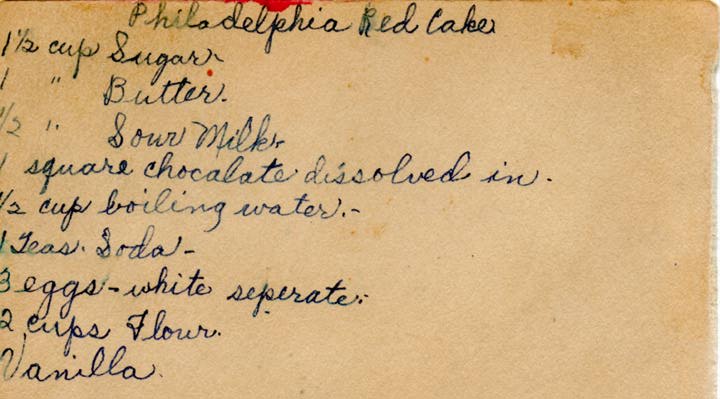 Philadelphia Red Cake
1 1/2 cup Sugar
1 " Butter.
1/2 " Sour Milk
1 square chocalate dissolved in.
1/2 cup boiling water.-
1 Teas. Soda -
3 eggs - white seperate.
2 cups Flour.
Vanilla.